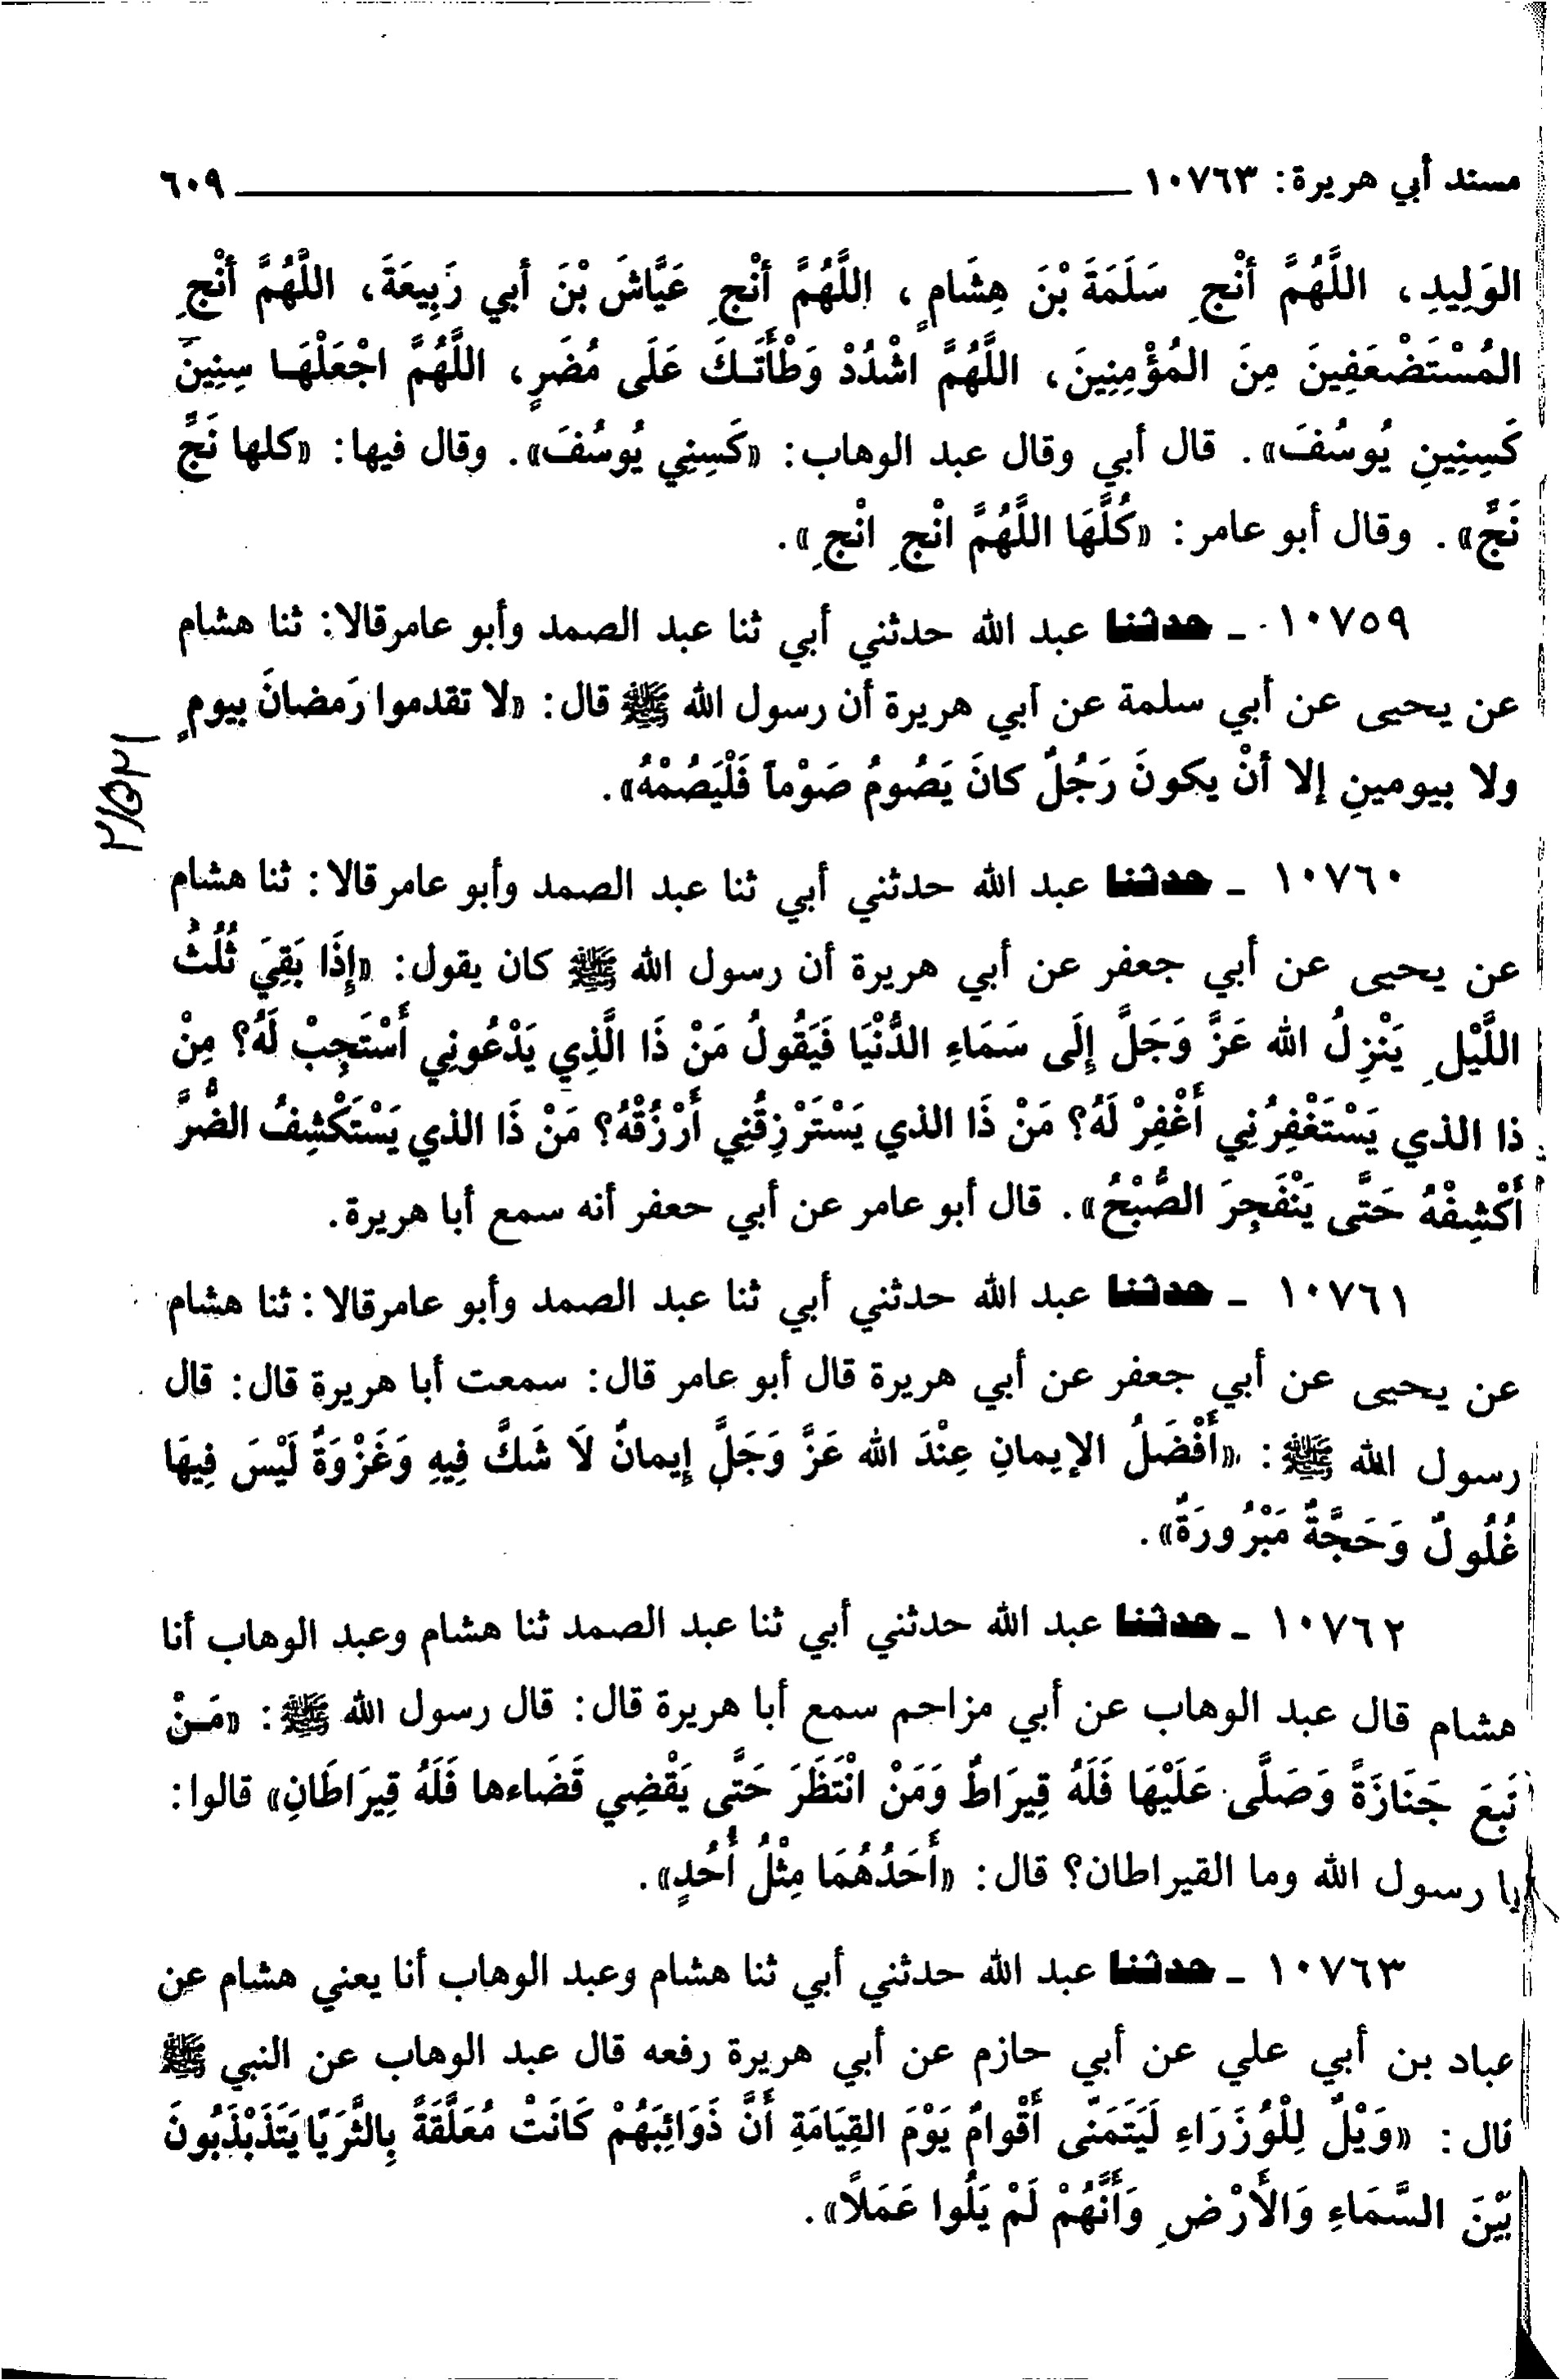 مسند أبي هريرة: ١٠٧٦٣ ٦٠٩
الوَلِيدِ، اللَّهُمَّ أَنْجِ سَلَمَةَ بْنَ هِشَامٍ، اللَّهُمَّ أَنْجِ عَيَّاشَ بْنَ أبي رَبِيعَةَ، اللَّهُمَّ أَنْجِ
المُسْتَضْعَفِينَ مِنَ المُؤْمِنِينَ، اللَّهُمَّ اشْدُدْ وَطْأَتَكَ عَلَى مُضَرٍ، اللَّهُمَّ اجْعَلْهَا سِنِينَ
كَسِنِينِ يُوسُفَ». قال أبي وقال عبد الوهاب: «كَسِنِي يُوسُفَ». وقال فيها: «كلها نَجِّ
نَجِّ». وقال أبو عامر: «كُلَّهَا اللَّهُمَّ انْجِ انْجِ».
١٠٧٥٩ ـ حدثنا عبد الله حدثني أبي ثنا عبد الصمد وأبو عامر قالا: ثنا هشام
عن يحيى عن أبي سلمة عن أبي هريرة أن رسول الله ﷺ قال: «لا تقدموا رَمضانَ بيومٍ
ولا بيومينِ إلا أنْ يكونَ رَجُلٌ كانَ يَصُومُ صَوْماً فَلْيَصُمْهُ».
٢/٥٢١
١٠٧٦٠ ـ حدثنا عبد الله حدثني أبي ثنا عبد الصمد وأبو عامر قالا: ثنا هشام
عن يحيى عن أبي جعفر عن أبي هريرة أن رسول الله ﷺ كان يقول: «إِذَا بَقِيَ ثُلُثُ
اللَّيْلِ يَنْزِلُ الله عَزَّ وَجَلَّ إِلَى سَمَاءِ الدُّنْيَا فَيَقُولُ مَنْ ذَا الَّذِي يَدْعُونِي أَسْتَجِبْ لَهُ؟ مِنْ
ذا الذي يَسْتَغْفِرُنِي أَغْفِرْ لَهُ؟ مَنْ ذَا الذي يَسْتَرْزِقُنِي أَرْزُقْهُ؟ مَنْ ذَا الذي يَسْتَكْشِفُ الضُّرَّ
أَكْشِفْهُ حَتَّى يَنْفَجِرَ الصُّبْحُ». قال أبو عامر عن أبي حعفر أنه سمع أبا هريرة.
١٠٧٦١ ـ حدثنا عبد الله حدثني أبي ثنا عبد الصمد وأبو عامر قالا: ثنا هشام
عن يحيى عن أبي جعفر عن أبي هريرة قال أبو عامر قال: سمعت أبا هريرة قال: قال
رسول الله ﷺ: «أَفْضَلُ الإيمانِ عِنْدَ الله عَزَّ وَجَلَّ إِيمانٌ لَا شَكَّ فِيهِ وَغَزْوَةٌ لَيْسَ فِيهَا
غُلُولٌ وَحَجَّةٌ مَبْرُورَةٌ».
١٠٧٦٢ ـ حدثنا عبد الله حدثني أبي ثنا عبد الصمد ثنا هشام وعبد الوهاب أنا
هشام قال عبد الوهاب عن أبي مزاحم سمع أبا هريرة قال: قال رسول الله ﷺ: «مَنْ
تَبِعَ جَنَازَةً وَصَلَّى عَلَيْهَا فَلَهُ قِيرَاطٌ وَمَنْ انْتَظَرَ حَتَّى يَقْضِي قَضَاءها فَلَهُ قِيرَاطَانِ» قالوا:
يا رسول الله وما القيراطان؟ قال: «أَحَدُهُمَا مِثْلُ أُحُدٍ».
١٠٧٦٣ ـ حدثنا عبد الله حدثني أبي ثنا هشام وعبد الوهاب أنا يعني هشام عن
عباد بن أبي علي عن أبي حازم عن أبي هريرة رفعه قال عبد الوهاب عن النبي ﷺ
قال: «وَيْلٌ لِلْوُزَرَاءِ لَيَتَمَنّى أَقْوامٌ يَوْمَ القِيَامَةِ أَنَّ ذَوَائِبَهُمْ كَانَتْ مُعَلَّقَةً بِالثُّرَيَّا يَتَذَبْذَبُونَ
بَيْنَ السَّمَاءِ وَالأَرْضِ وَأَنَّهُمْ لَمْ يَلُوا عَمَلاً».